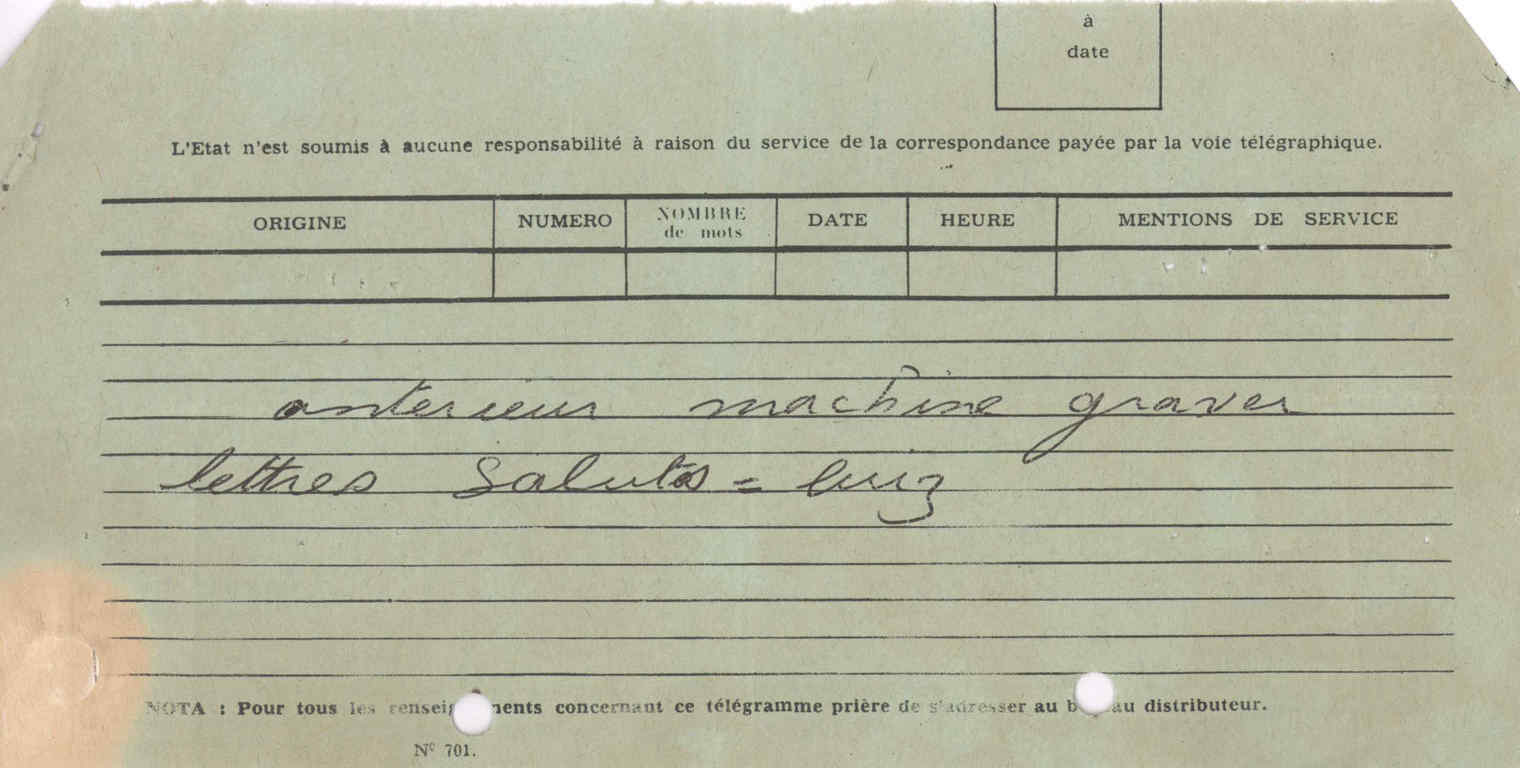 à
date
L'Etat n'est soumis à aucune responsabilité à raison du service de la correspondance payée par la voie télégraphique.
ORIGINE NUMERO NOMBRE de mots DATE HEURE MENTIONS DE SERVICE
anterieur machine graver
lettres Saluts = luiz
NOTA : Pour tous les concernant ce télégramme prière de s'adresser au distributeur.
Nº 701.